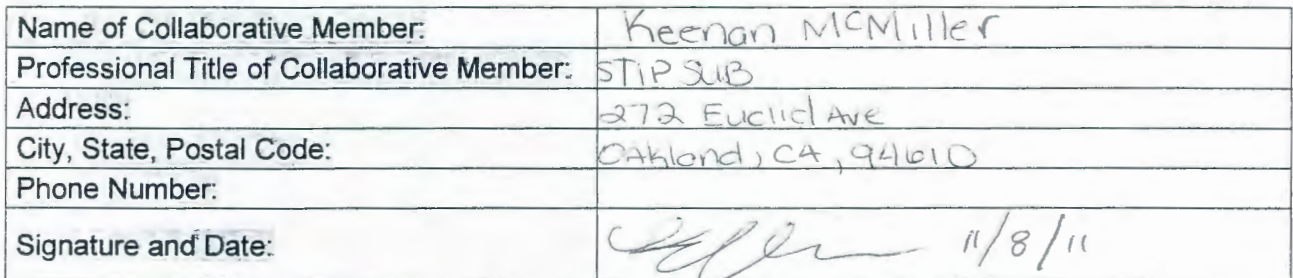 Name of Collaborative Member: Keenan McMiller
Professional Title of Collaborative Member: STIP SUB
Address: 272 Euclid Ave
City, State, Postal Code: Oakland, CA, 94610
Phone Number:
Signature and Date: 11/8/11